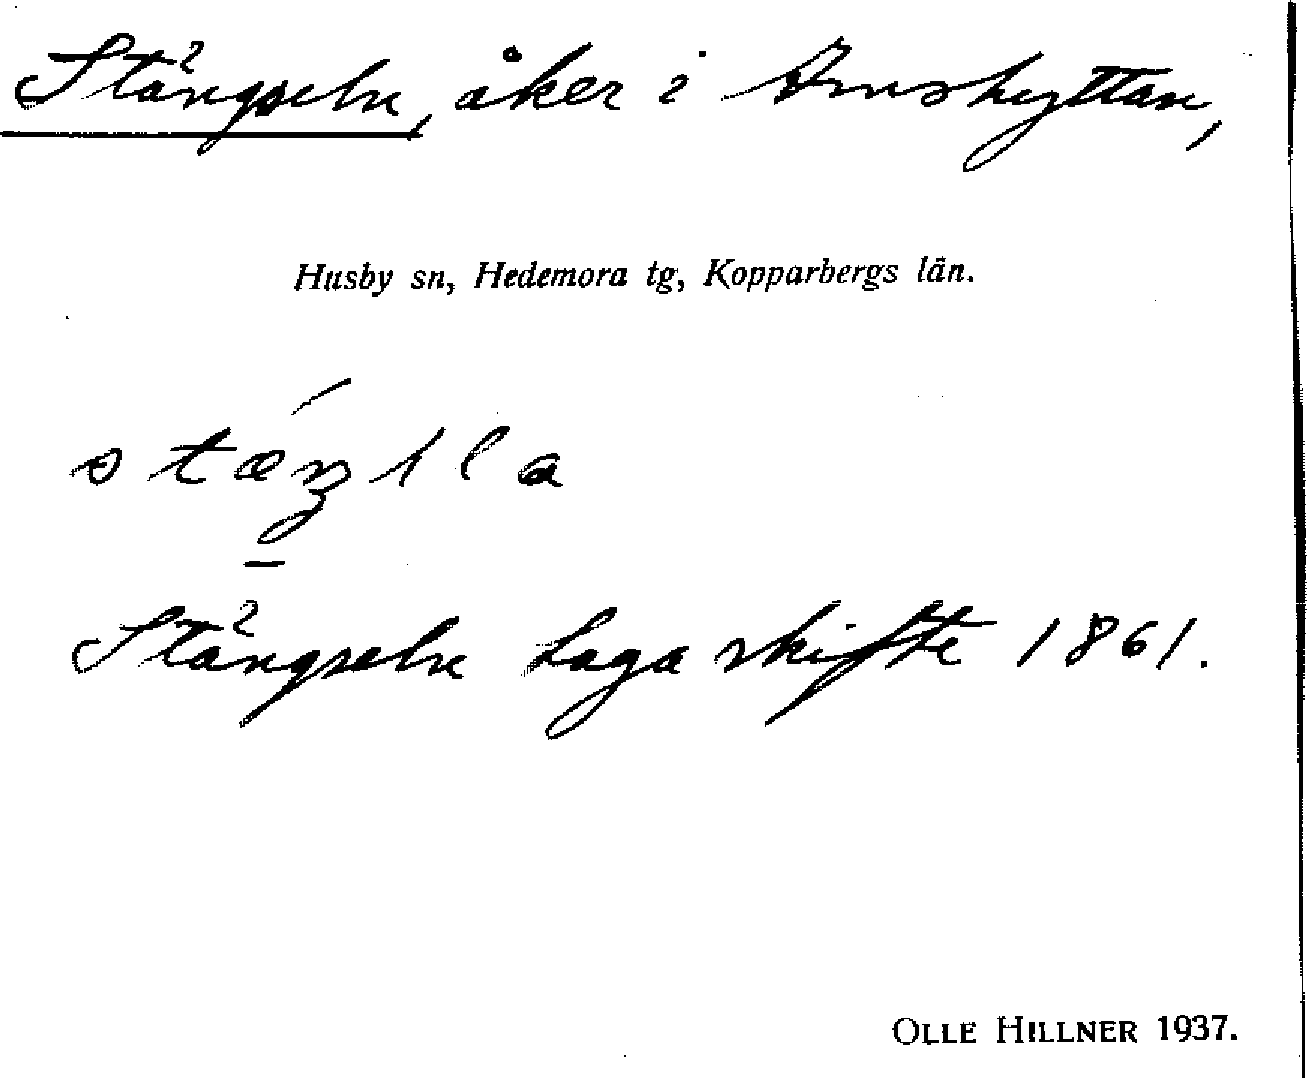 Stängseln, åker i Smshyttan,
Husby sn, Hedemora tg, Kopparbergs län.
Stängseln Laga skifte 1861.
OLLE HILLNER 1937.